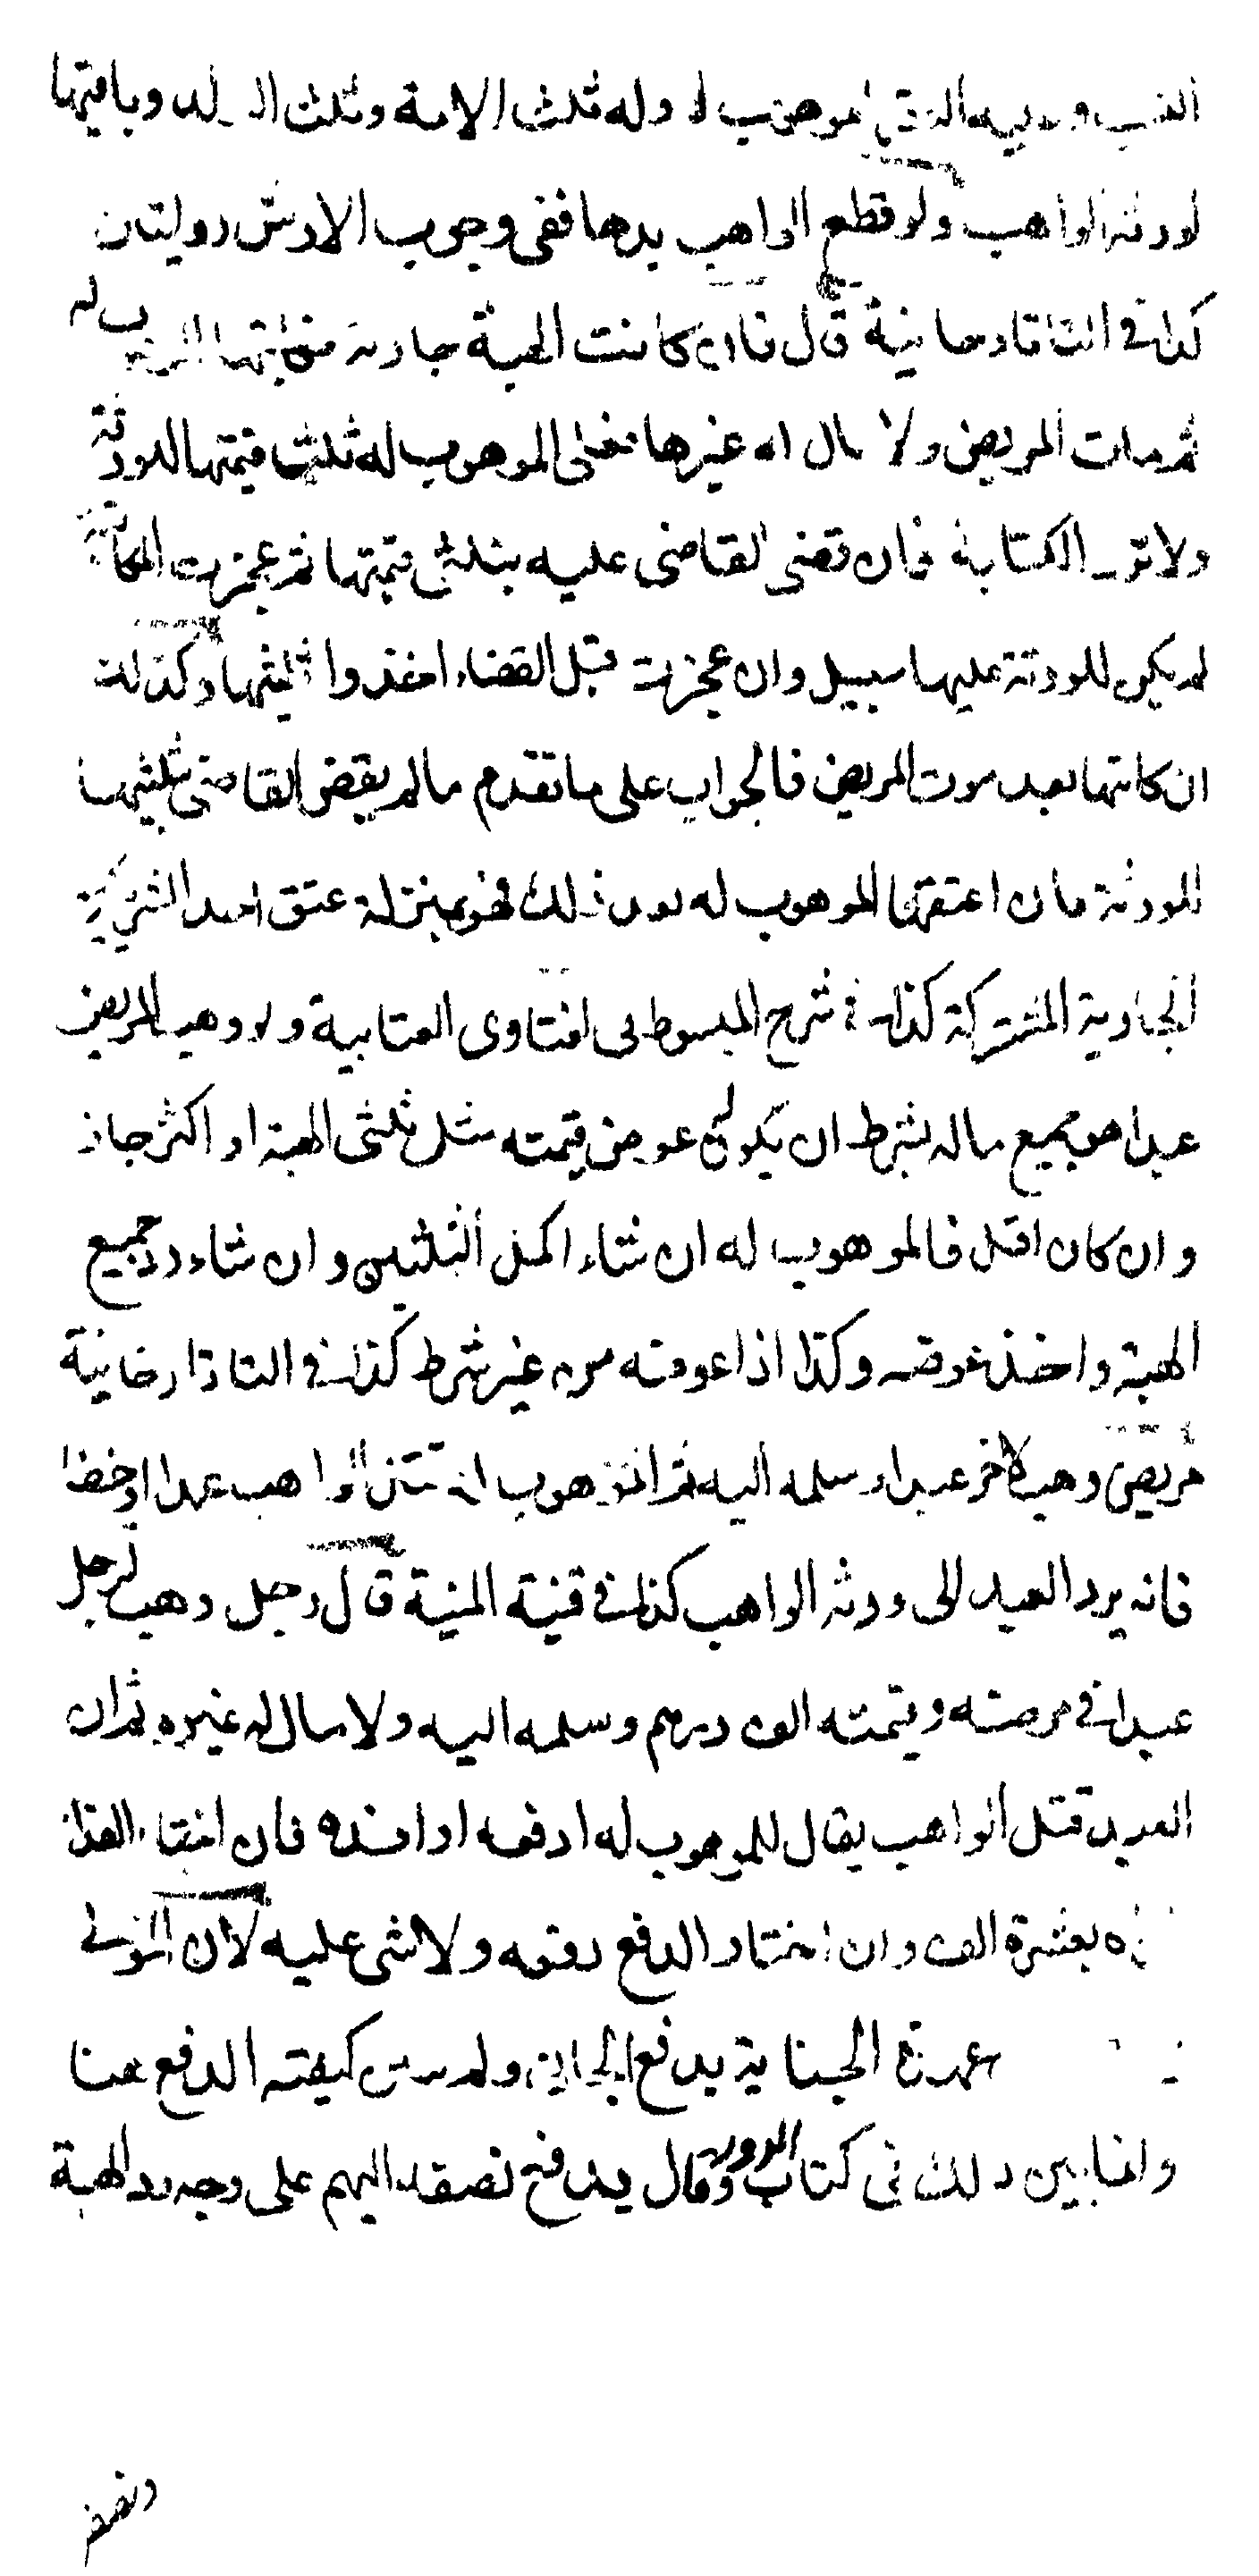 الموهوب له وله ثلث الامة وثلث الولد وباقيها
لورثة الواهب ولو قطع الواهب يدها ففى وجوب الارش روايتان
كذا فى التاتارخانية قال فان كانت الهبة جارية فكاتبها الموهوب له
ثم مات المريض ولا مال له غيرها فعلى الموهوب له ثلثى قيمتها للورثة
ولا ترد الكتابة فان قضى القاضى عليه بثلثى قيمتها ثم عجزت المكاتبة
لم يكن للورثة عليها سبيل وان عجزت قبل القضاء اخذوا ثلثيها وكذلك
ان كاتبها بعد موت المريض فالجواب على ما تقدم مالم يقض القاضى بثلثيها
للورثة فان اعتقها الموهوب له بعد ذلك فهو بمنزلة عتق احد الشريكين
الجارية المشتركة كذا فى شرح المبسوط فى الفتاوى العتابية ولو وهب المريض
عبدا هو جميع ماله بشرط ان يكون عوض قيمته مثل ثلثى الهبة او اكثر جاز
وان كان اقل فالموهوب له ان شاء اكمل الثلثين وان شاء رد جميع
الهبة واخذ عوضه وكذا اذا عوضه من غير شرط كذا فى التاتارخانية
مريض وهب لاخر عبدا وسلمه اليه ثم الموهوب له قتل الواهب عمدا او خطا
فانه يرد العبد الى ورثه الواهب كذا فى قنية المنية قال رجل وهب لرجل
عبدا فى مرضه وقيمته الف درهم وسلمه اليه ولا مال له غيره ثم ان
العبد قتل الواهب يقال للموهوب له ادفعه او افده فان اختار الفدا
فداه بعشرة الف وان اختار الدفع دفعه ولا شى عليه لان المولى
عهدة الجناية بدفع الجانى ولم يبين كيفته الدفع هنا
وانما بين ذلك فى كتاب الدور وقال يدفع نصفه اليهم على وجه رد الهبة
ونصفه